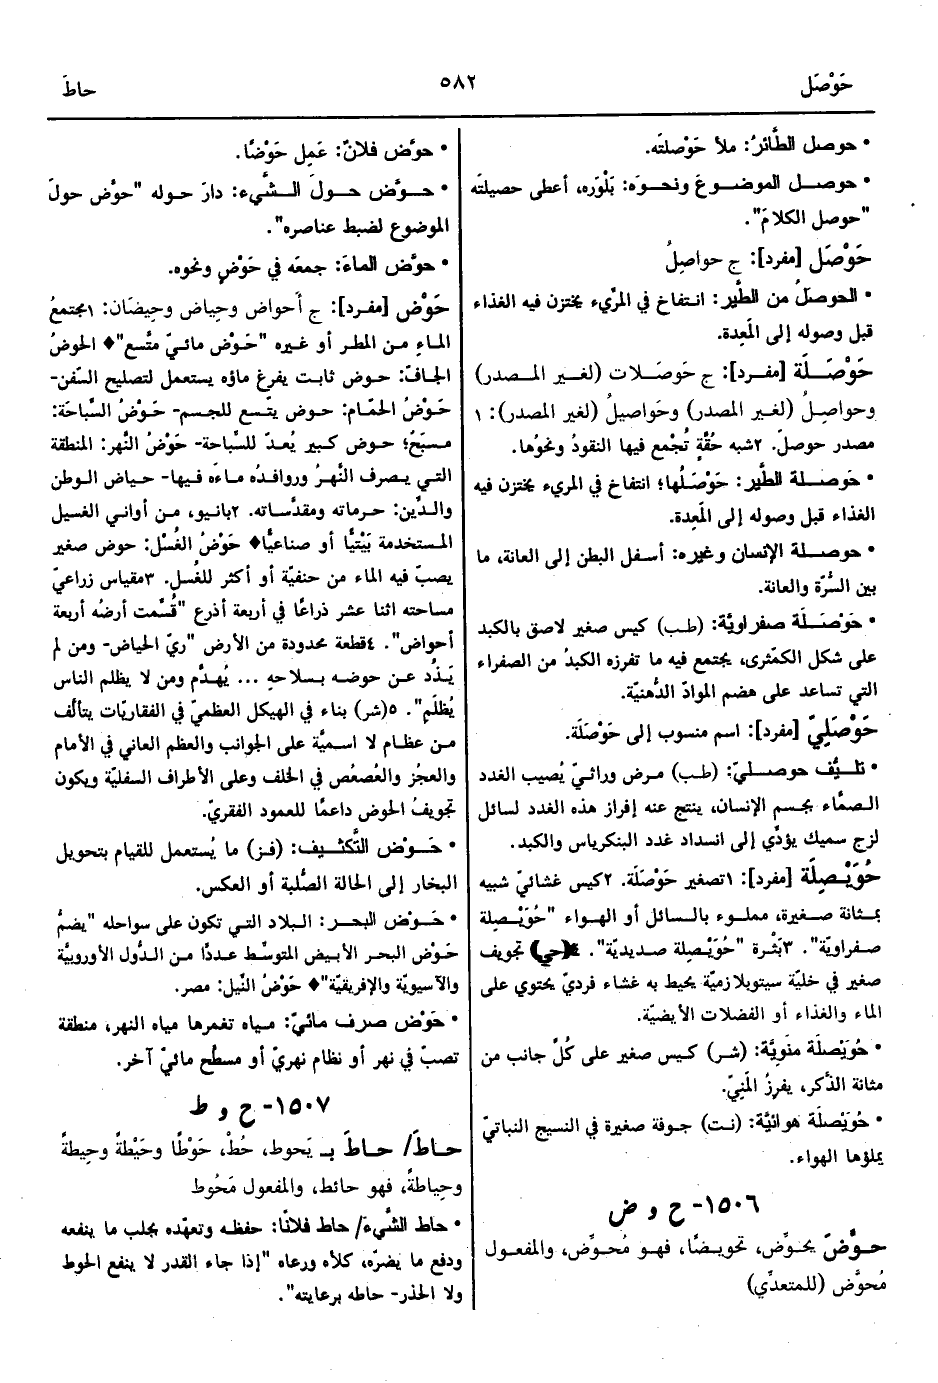 حَوْصَل
٥٨٢
حاطَ
• حوصل الطَّائرُ: ملأ حَوْصلتَه.
• حوصل الموضوعَ ونحوَه: بَلْوَره، أعطى حصيلتَه
"حوصل الكلامَ".
حَوْصَل [مفرد]: ج حواصِلُ
• الحوصلُ من الطَّير: انتفاخ في المرِّيء يختزن فيه الغذاء
قبل وصوله إلى المَعِدة.
حَوْصَلَة [مفرد]: ج حَوصَلات (لغير المصدر)
وحواصِلُ (لغير المصدر) وحَواصيلُ (لغير المصدر): ١
مصدر حوصلَ. ٢شبه حُقَّةٍ تُجْمع فيها النقودُ ونحوُها.
• حَوصلة الطَّير: حَوْصَلُها؛ انتفاخ في المريء يختزن فيه
الغذاء قبل وصوله إلى المَعِدة.
• حوصلة الإنسان وغيره: أسفل البطن إلى العانة، ما
بين السُّرّة والعانة.
• حَوْصَلَة صفراويَّة: (طب) كيس صغير لاصق بالكبد
على شكل الكمّثرى، يجتمع فيه ما تفرزه الكبدُ من الصفراء
التي تساعد على هضم الموادّ الدُّهنيَّة.
حَوْصَلِيّ [مفرد]: اسم منسوب إلى حَوْصَلَة.
• تليُّف حوصليّ: (طب) مرض وراثيّ يُصيب الغدد
الصمَّاء بجسم الإنسان، ينتج عنه إفراز هذه الغدد لسائل
لزج سميك يؤدّي إلى انسداد غدد البنكرياس والكبد.
حُوَيْصِلَة [مفرد]: ١تصغير حَوْصَلَة. ٢كيس غشائيّ شبيه
بمثانة صغيرة، مملوء بالسائل أو الهواء "حُوَيْصِلة
صفراويّة". ٣بَثْرة "حُوَيْصِلة صديديّة". ٤(حي) تجويف
صغير في خليَّة سيتوبلازميّة يحيط به غشاء فرديّ يحتوي على
الماء والغذاء أو الفضلات الأيضيَّة.
• حُوَيْصلة مَنَوِيَّة: (شر) كيس صغير على كُلِّ جانب من
مثانة الذَّكر، يفرزُ المَنِيّ.
• حُوَيْصِلَة هوائيَّة: (نت) جوفة صغيرة في النسيج النباتيّ
يملؤها الهواء.
١٥٠٦- ح و ض
حوَّضَ يحوِّض، تحويضًا، فهو مُحوِّض، والمفعول
مُحوَّض (للمتعدِّي)
• حوَّض فلانٌ: عَمِل حَوْضًا.
• حوَّض حولَ الشَّيء: دارَ حوله "حوَّض حولَ
الموضوع لضبط عناصره".
• حوَّض الماءَ: جمعَه في حَوْضٍ ونحوه.
حَوْض [مفرد]: ج أحواض وحِياض وحِيضَان: ١مجتمعُ
الماءِ من المطر أو غيره "حَوْض مائيّ متَّسع"♦ الحوضُ
الجافّ: حوض ثابت يفرغ ماؤه يستعمل لتصليح السّفن-
حَوْضُ الحمّام: حوض يتّسع للجسم- حَوْضُ السِّباحَة:
مسبَحٌ؛ حوض كبير يُعدّ للسِّباحة- حَوْضُ النَّهر: المنطقة
التي يصرف النَّهرُ وروافدُه ماءَه فيها- حياض الوطن
والدِّين: حرماته ومقدَّساته. ٢بانيو، من أواني الغسيل
المستخدمة بَيْتيًّا أو صناعيًّا♦ حَوْضُ الغسْل: حوض صغير
يصبّ فيه الماء من حنفيّة أو أكثر للغُسل. ٣مقياس زراعيّ
مساحته اثنا عشر ذراعًا في أربعة أذرع "قُسِّمت أرضُه أربعة
أحواض". ٤قطعة محدودة من الأرض "ريّ الحياض- ومن لم
يَذُدْ عن حوضه بسلاحه ... يُهدَّم ومن لا يظلم الناس
يُظلَمِ". ٥(شر) بناء في الهيكل العظميّ في الفقاريّات يتألّف
من عظام لا اسميَّة على الجوانب والعظم العاني في الأمام
والعجُز والعُصعُص في الخلف وعلى الأطراف السفليّة ويكون
تجويفُ الحوض داعمًا للعمود الفقريّ.
• حَوْض التَّكثيف: (فز) ما يُستعمل للقيام بتحويل
البخار إلى الحالة الصُّلبة أو العكس.
• حَوْض البحر: البلاد التي تكون على سواحله "يضمُّ
حَوْض البحر الأبيض المتوسِّط عددًا من الدُّول الأوروبيَّة
والآسيويّة والإفريقيّة"♦ حَوْضُ النِّيل: مصر.
• حَوْض صرف مائيّ: مياه تغمرها مياه النهر، منطقة
تصبّ في نهر أو نظام نهريّ أو مسطَّح مائيّ آخر.
١٥٠٧- ح و ط
حاطَ/ حاطَ بـ يَحوط، حُطْ، حَوْطًا وحَيْطةً وحِيطةً
وحِياطةً، فهو حائط، والمفعول مَحُوط
• حاط الشَّيءَ/ حاط فلانًا: حفظه وتعهّده بجلب ما ينفعه
ودفع ما يضرّه، كلأه ورعاه "إذا جاء القدر لا ينفع الحوط
ولا الحذر- حاطه برعايته".